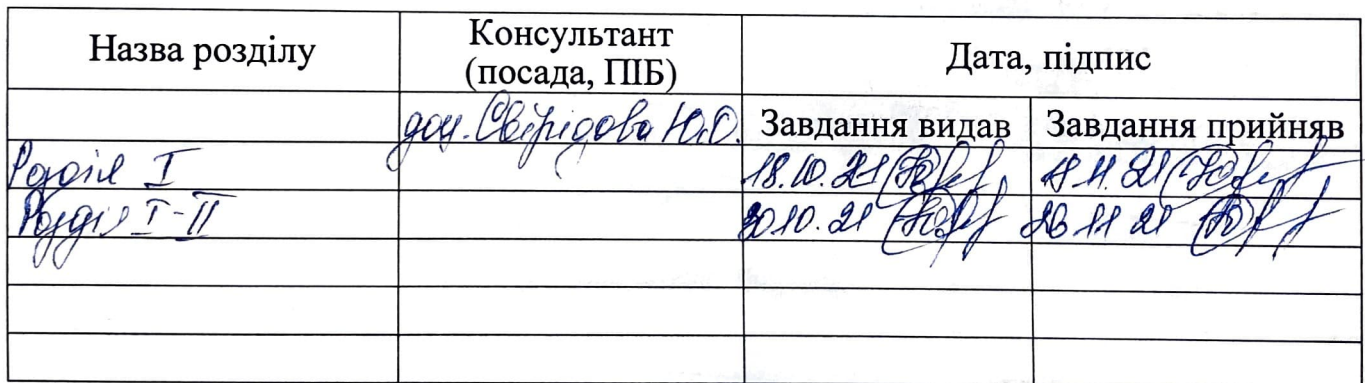 Назва розділу Консультант (посада, ПІБ) Дата, підпис
доц. Свірідова Ю.О. Завдання видав Завдання прийняв
Розділ I 18.10.21 18.11.21
Розділ I-II 30.10.21 26 11 21